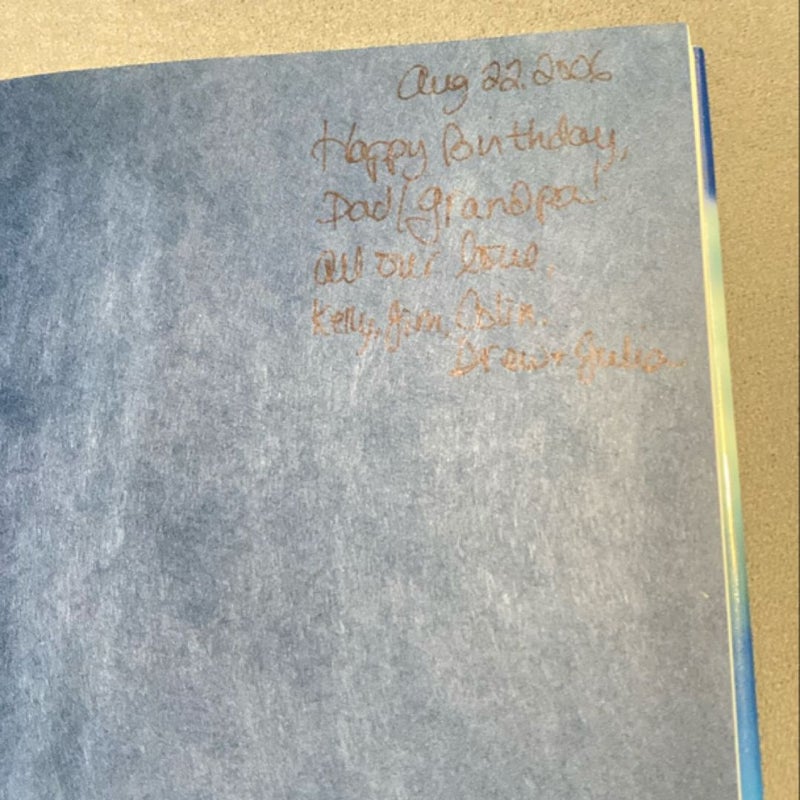 Aug 22. 2006
Happy Birthday,
Dad/Grandpa!
All our love,
Kelly, Jim, Colin,
Drew + Julia